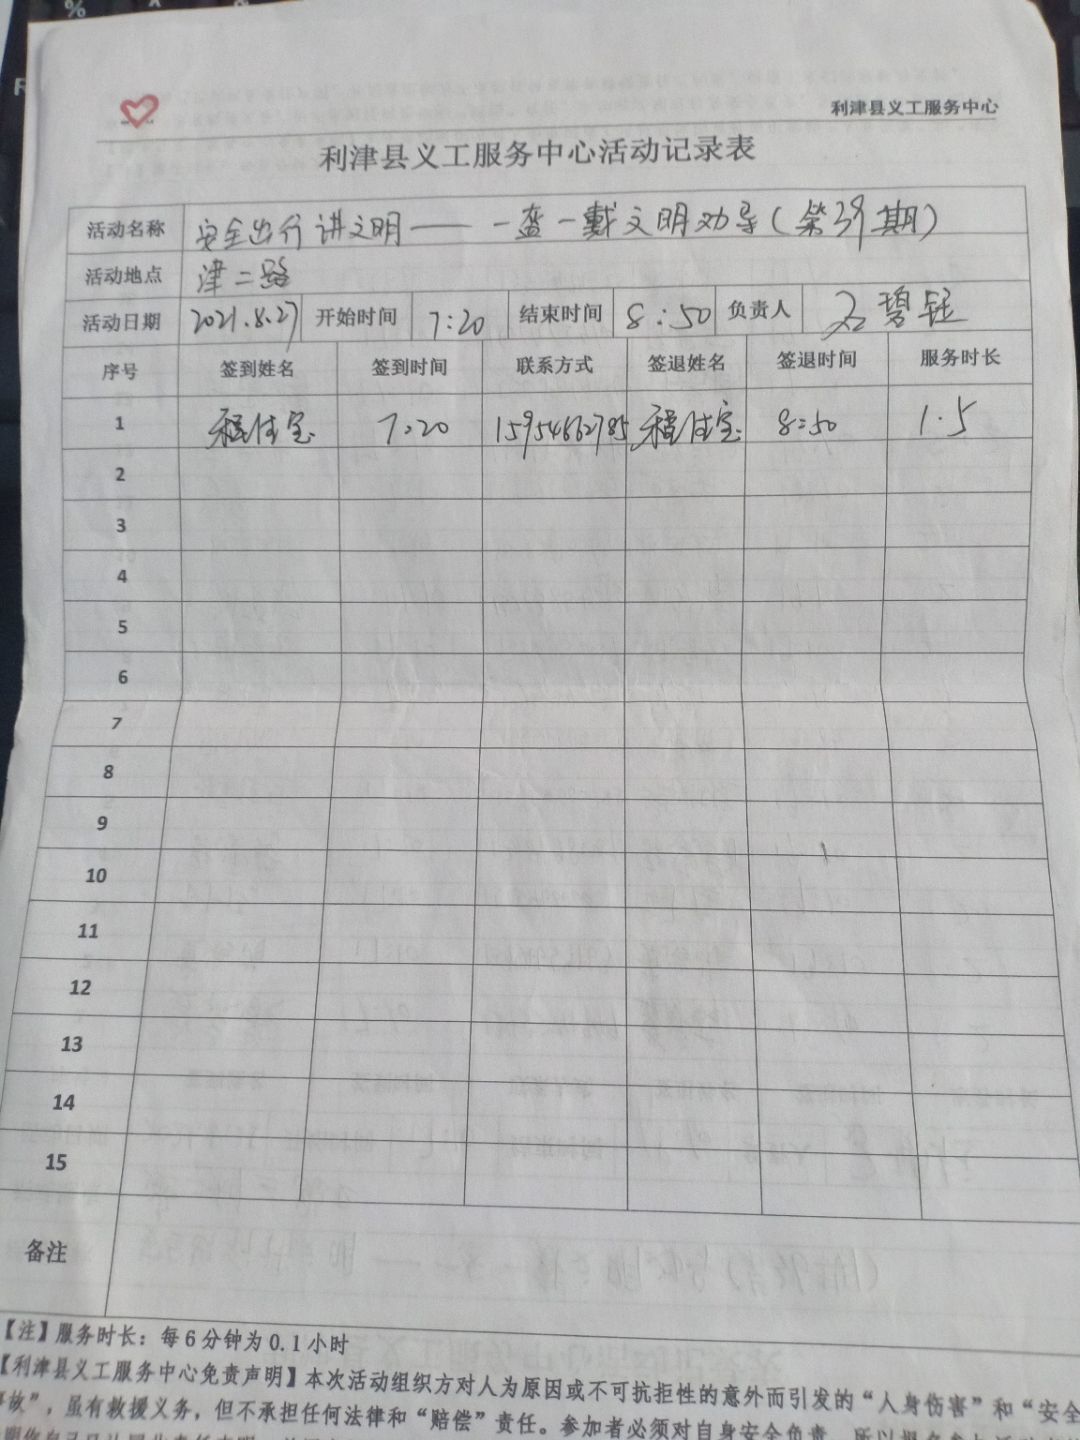 利津县义工服务中心
利津县义工服务中心活动记录表
活动名称 安全出行讲文明——一盔一戴文明劝导(第39期)
活动地点 津二路
活动日期 2021.8.27 开始时间 7:20 结束时间 8:50 负责人
序号 签到姓名 签到时间 联系方式 签退姓名 签退时间 服务时长
1 程佳宝 7:20 15954662785 程佳宝 8:50 1.5
2
3
4
5
6
7
8
9
10
11
12
13
14
15
备注
【注】服务时长：每6分钟为0.1小时
【利津县义工服务中心免责声明】本次活动组织方对人为原因或不可抗拒性的意外而引发的“人身伤害”和“安全
事故”，虽有救援义务，但不承担任何法律和“赔偿”责任。参加者必须对自身安全负责